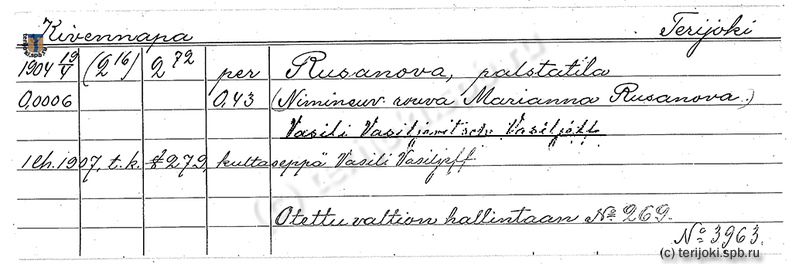 Kivennapa Terijoki
1904 19/V (2¹⁶) 2⁷² per Rusanova, palstatila
0,0006 0,43 (Niminsuv. rouva Marianna Rusanova.)
Vasili
1 lh. 1907, t.k. § 279, kultaseppä Vasili Vasiljeff
Otettu valtion hallintaan № 269.
№ 3963.
(c) terijoki.spb.ru